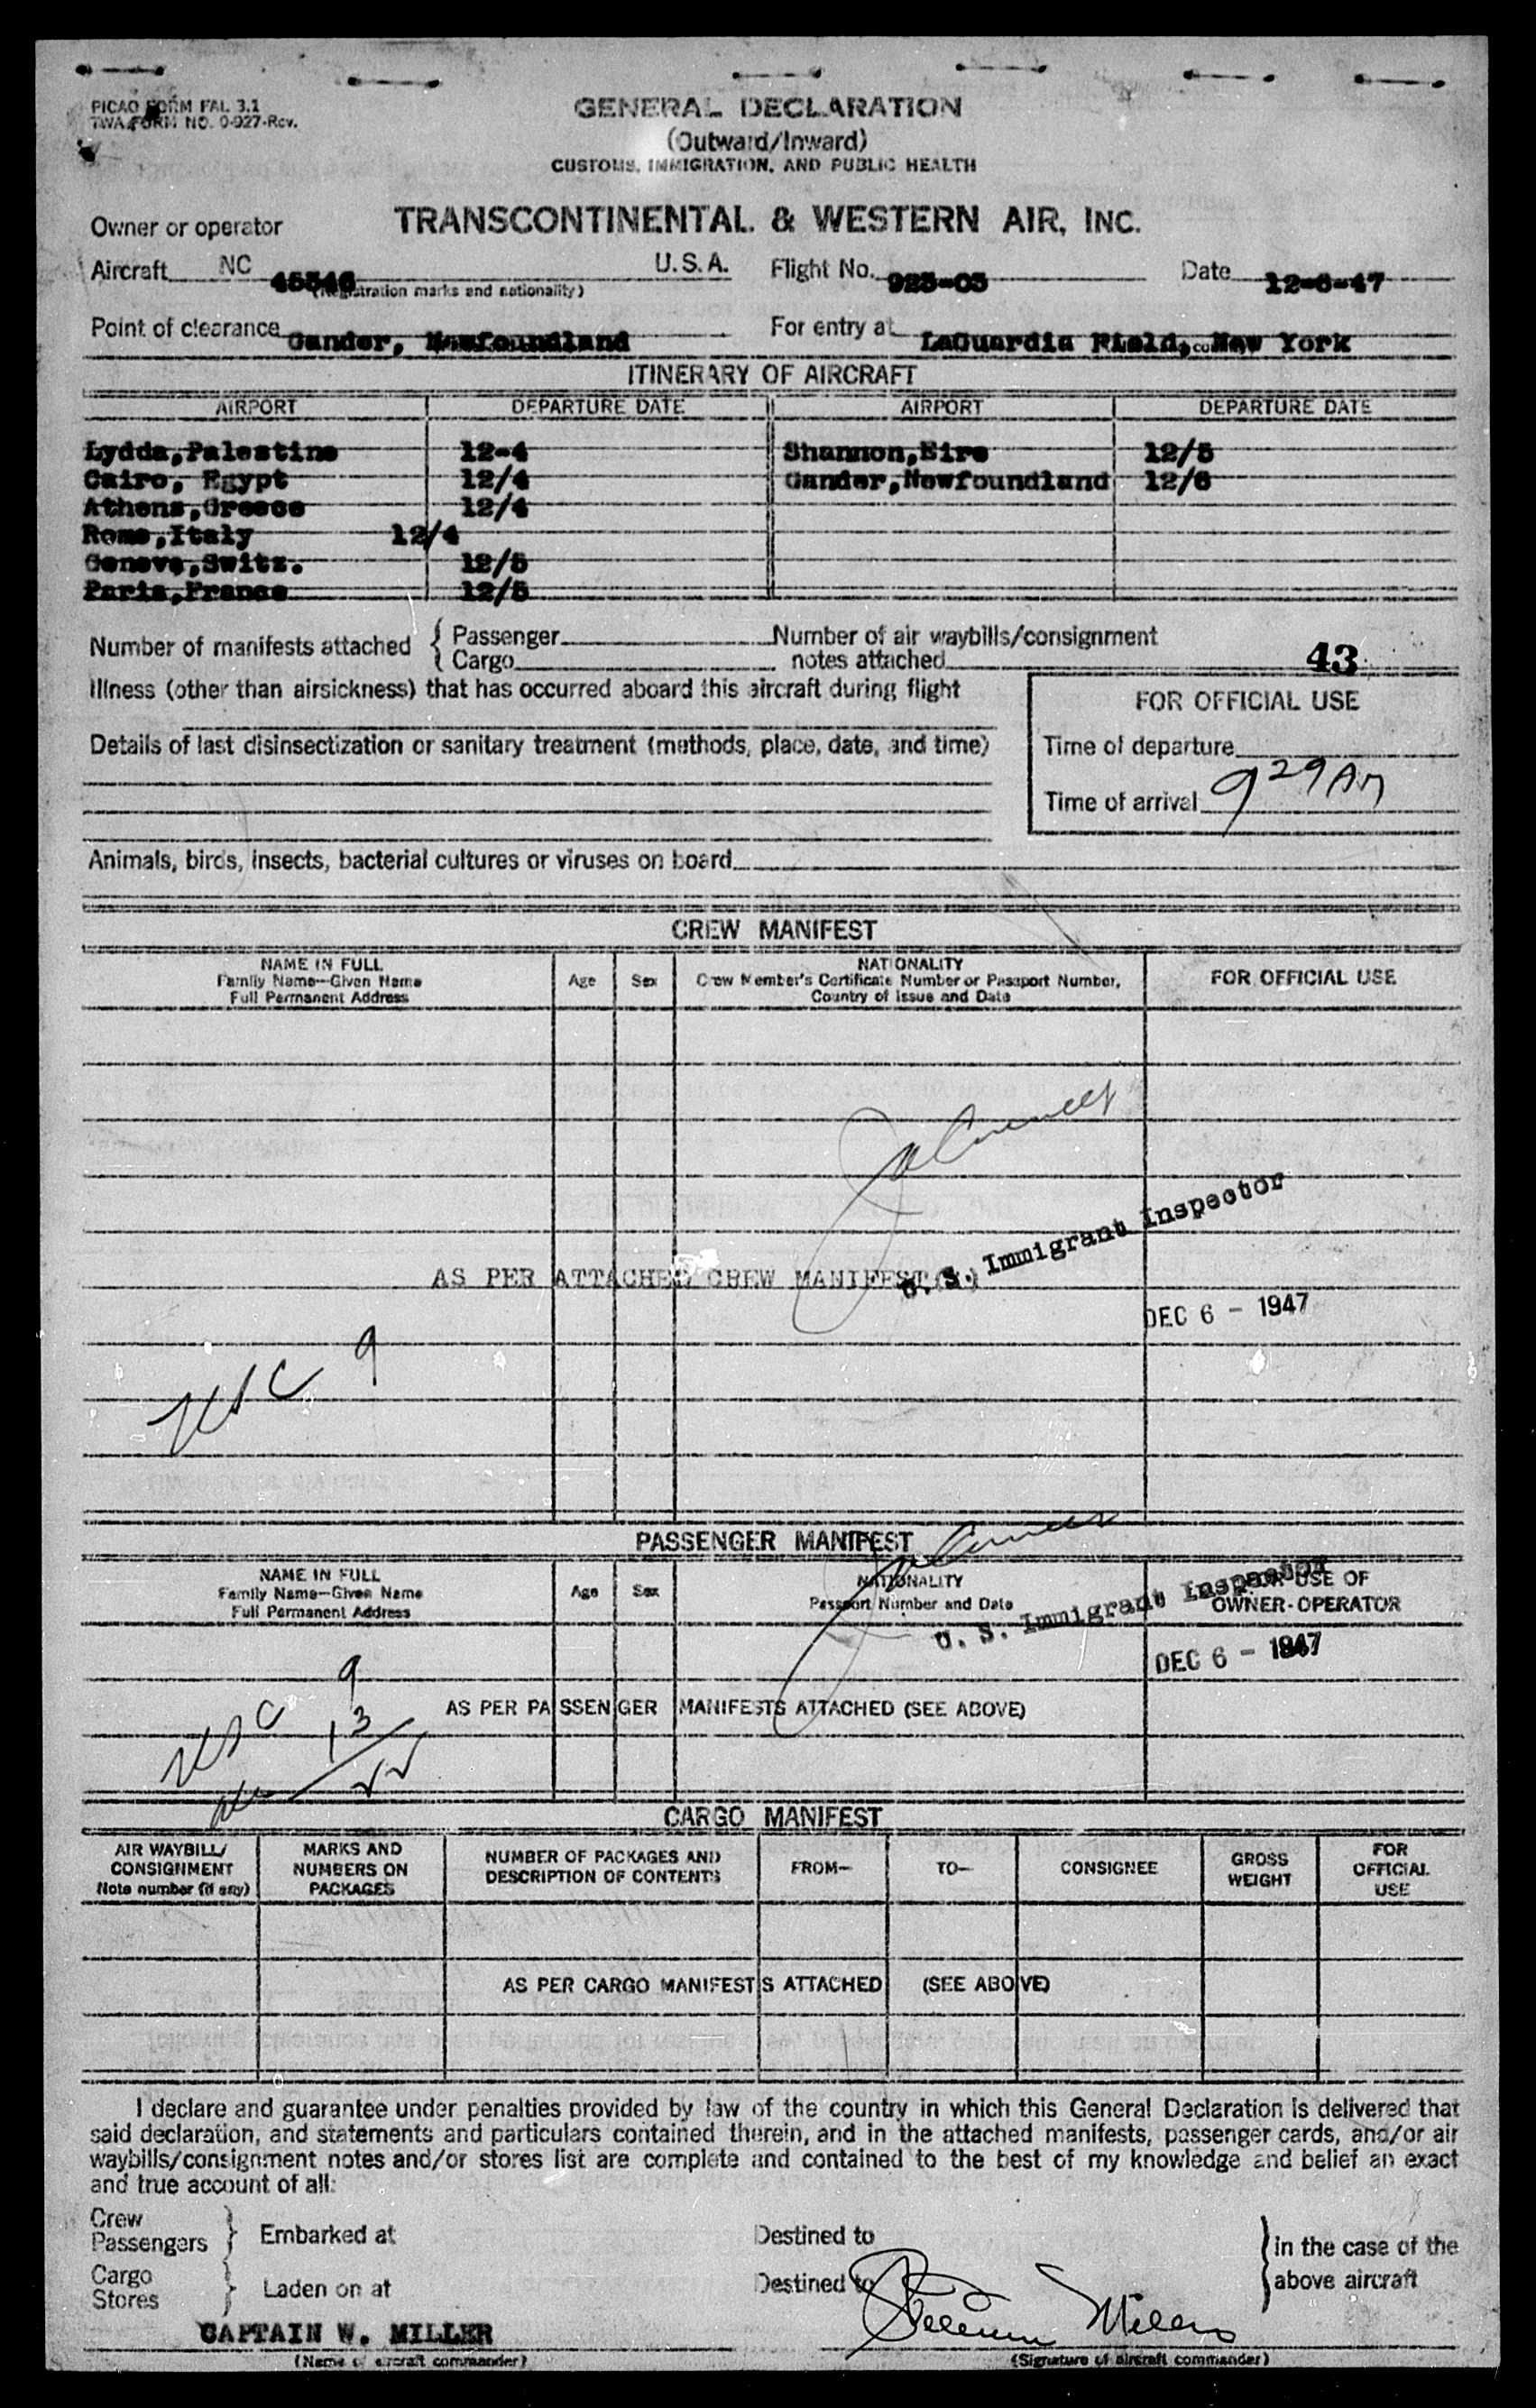 PICAO FORM FAL 3.1
TWA FORM NO. 0-927-Rev.
GENERAL DECLARATION
(Outward/Inward)
CUSTOMS, IMMIGRATION, AND PUBLIC HEALTH
Owner or operator TRANSCONTINENTAL & WESTERN AIR, INC.
Aircraft NC 45546 U.S.A. Flight No. 925-05 Date 12-6-47
(Registration marks and nationality)
Point of clearance Gander, Newfoundland For entry at LaGuardia Field, New York
ITINERARY OF AIRCRAFT
AIRPORT DEPARTURE DATE AIRPORT DEPARTURE DATE
Lydda,Palestine 12-4 Shannon,Eire 12/5
Cairo, Egypt 12/4 Gander,Newfoundland 12/6
Athens,Greece 12/4
Rome,Italy 12/4
Geneva,Switz. 12/5
Paris,France 12/5
Number of manifests attached { Passenger Number of air waybills/consignment
Cargo notes attached 43
Illness (other than airsickness) that has occurred aboard this aircraft during flight
FOR OFFICIAL USE
Details of last disinsectization or sanitary treatment (methods, place, date, and time)
Time of departure
Time of arrival 9 29 AM
Animals, birds, insects, bacterial cultures or viruses on board
CREW MANIFEST
NAME IN FULL
Family Name—Given Name
Full Permanent Address
Age Sex
NATIONALITY
Crew Member's Certificate Number or Passport Number,
Country of Issue and Date
FOR OFFICIAL USE
U. S. Immigrant Inspector
AS PER ATTACHED CREW MANIFEST
DEC 6 - 1947
USC 9
PASSENGER MANIFEST
NAME IN FULL
Family Name—Given Name
Full Permanent Address
Age Sex
NATIONALITY
Passport Number and Date
FOR USE OF
OWNER-OPERATOR
U. S. Immigrant Inspector
DEC 6 - 1947
USC 9
13
22
AS PER PASSENGER MANIFESTS ATTACHED (SEE ABOVE)
CARGO MANIFEST
AIR WAYBILL/
CONSIGNMENT
Note number (if any)
MARKS AND
NUMBERS ON
PACKAGES
NUMBER OF PACKAGES AND
DESCRIPTION OF CONTENTS
FROM—
TO—
CONSIGNEE
GROSS
WEIGHT
FOR
OFFICIAL
USE
AS PER CARGO MANIFESTS ATTACHED (SEE ABOVE)
I declare and guarantee under penalties provided by law of the country in which this General Declaration is delivered that
said declaration, and statements and particulars contained therein, and in the attached manifests, passenger cards, and/or air
waybills/consignment notes and/or stores list are complete and contained to the best of my knowledge and belief an exact
and true account of all:
Crew
Passengers } Embarked at Destined to
Cargo
Stores } Laden on at Destined to
} in the case of the
above aircraft
CAPTAIN W. MILLER
(Name of aircraft commander)
Miller
(Signature of aircraft commander)